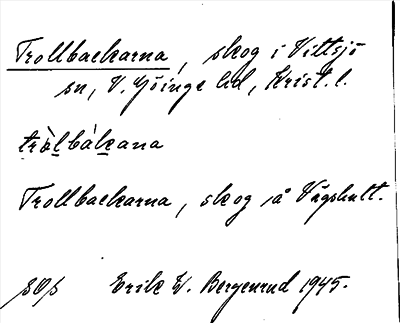 Trollbackarna, skog i Vittsjö
sn, V. Göinge hd, Krist. l.
tròlbàkana
Trollbackarna, skog å Vägshult.
sOs Erik W. Bergenrud 1945.